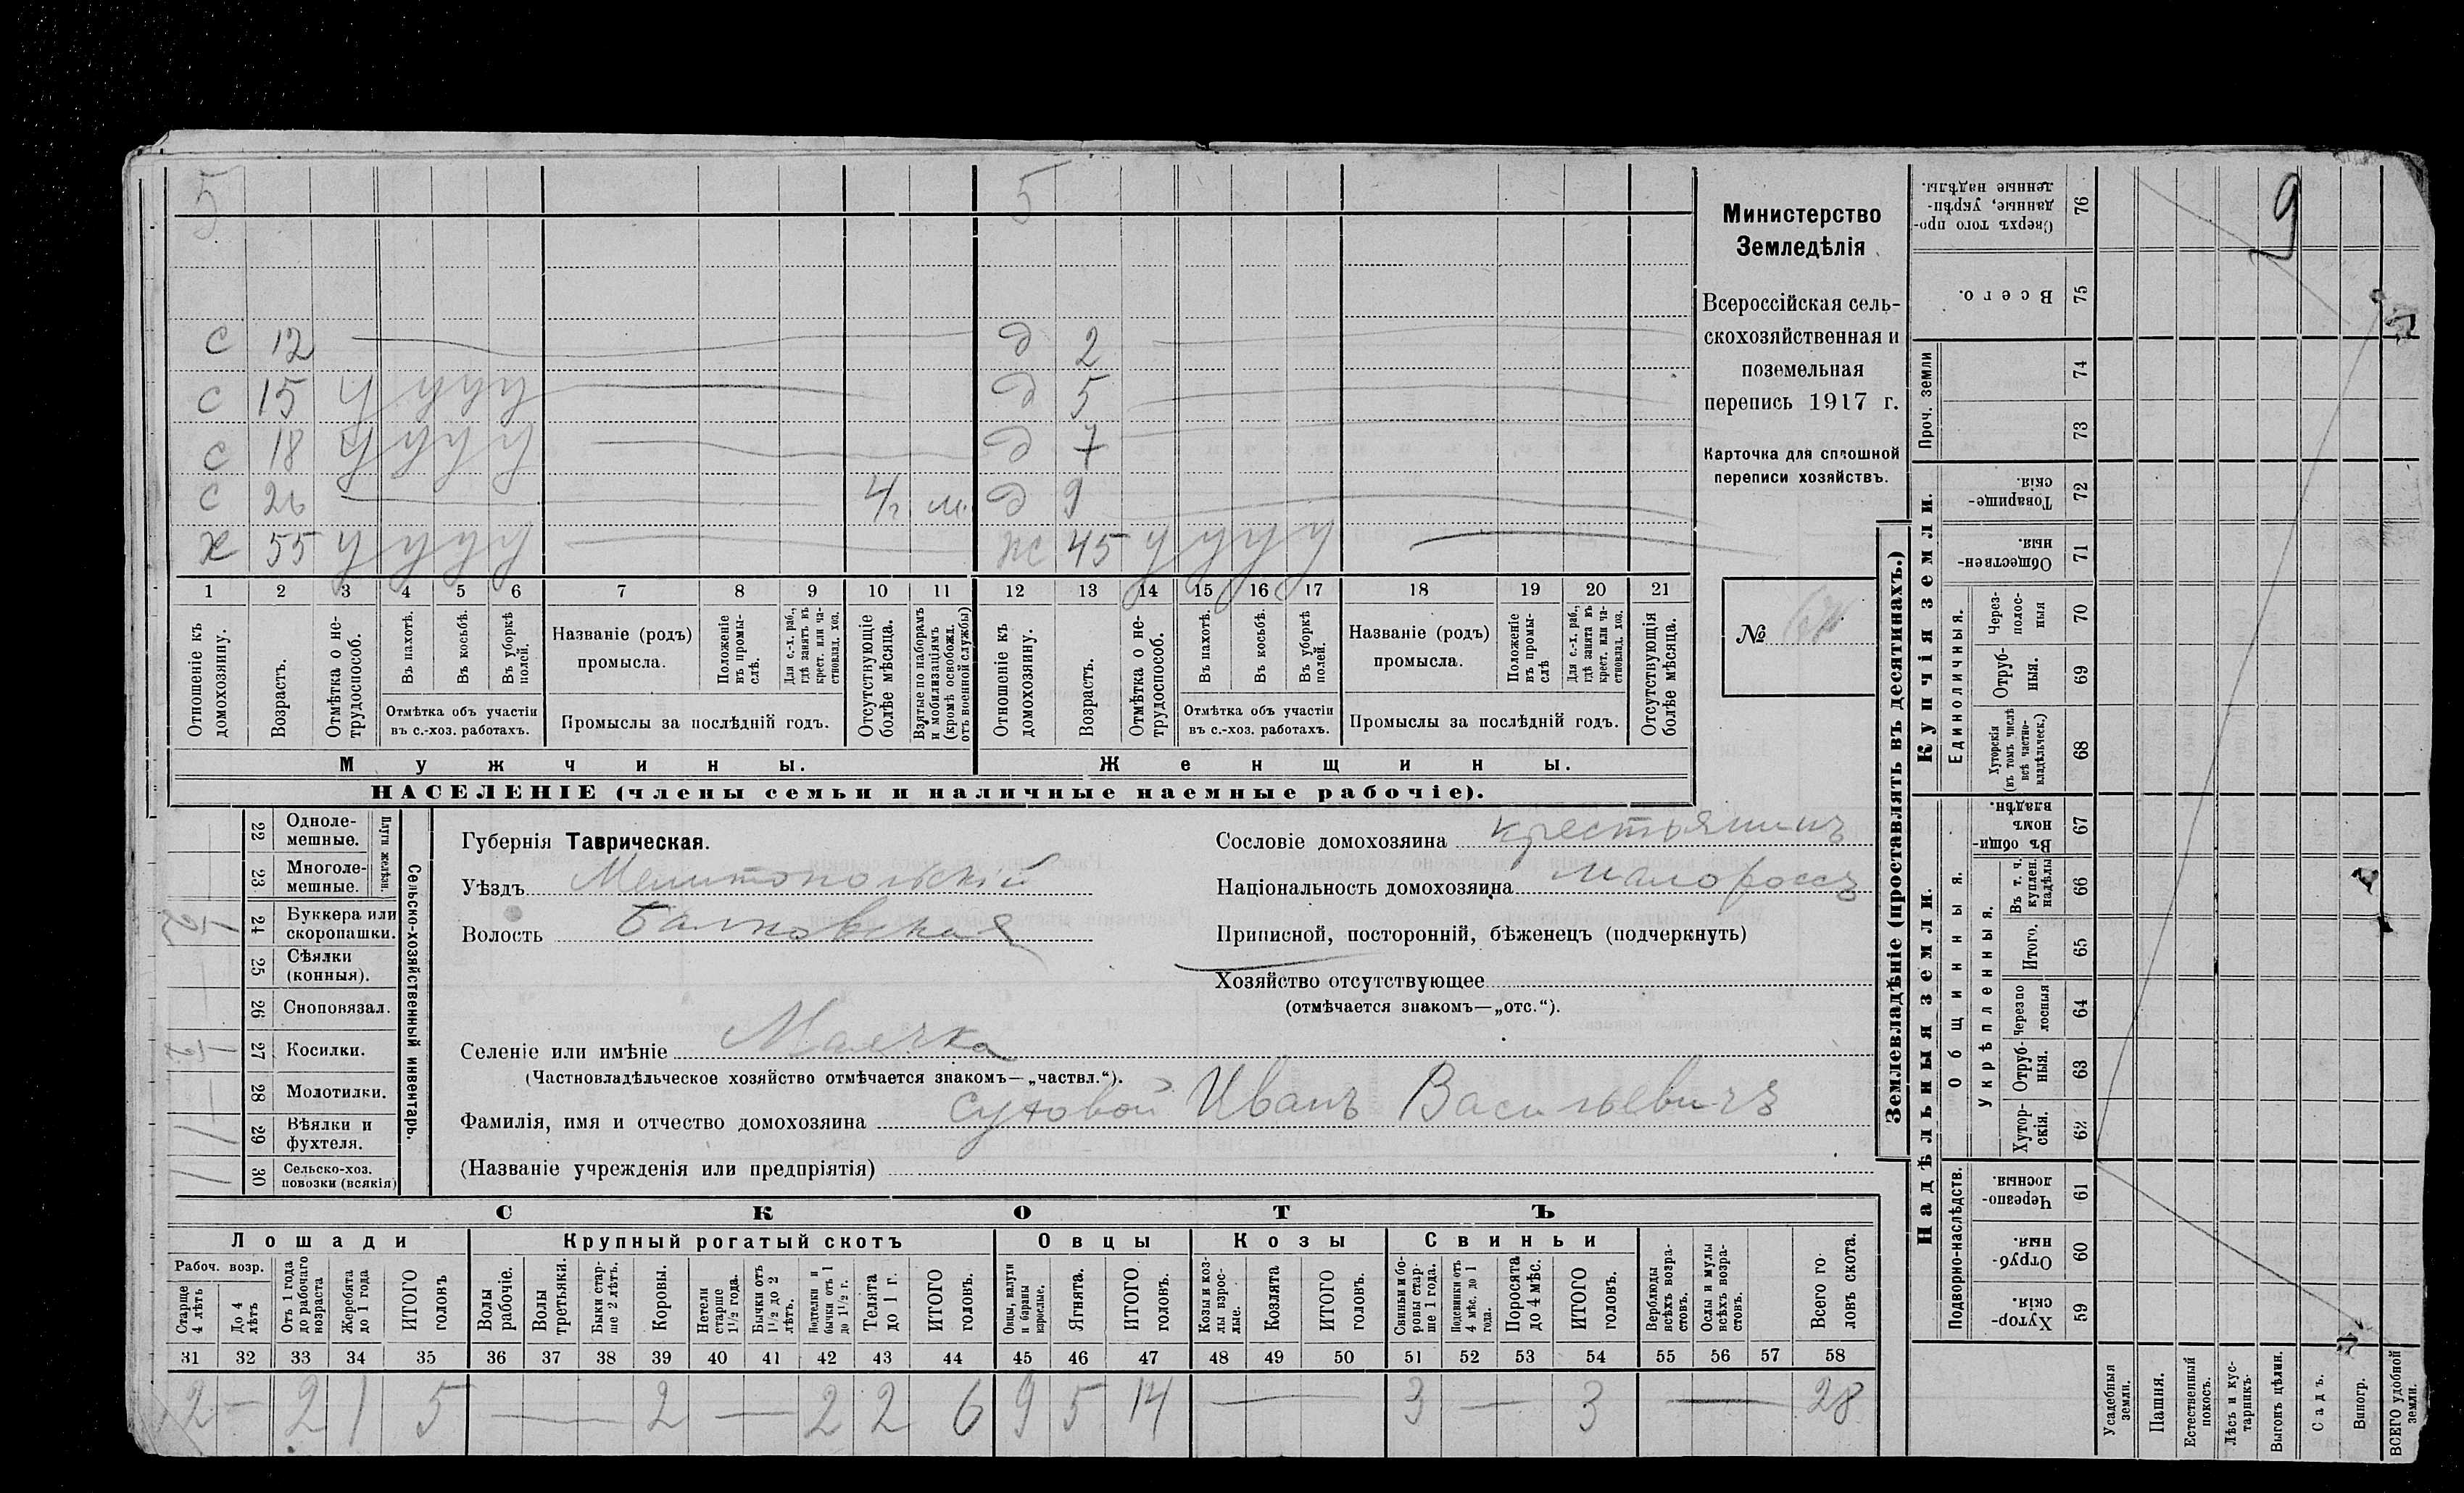 5 5
С 12 д 2
С 15 у у у у д 5
С 18 у у у у д 7
С 26 4 г. м. д 9
Х 55 у у у у ж 45 у у у у
1 2 3 4 5 6 7 8 9 10 11 12 13 14 15 16 17 18 19 20 21
Отношеніе къ домохозяину.
Возрастъ.
Отмѣтка о нетрудоспособ.
Въ пахотѣ.
Въ косьбѣ.
Въ уборкѣ полей.
Отмѣтка объ участіи въ с.-хоз. работахъ.
Названіе (родъ) промысла.
Положеніе въ промыслѣ.
Для с.-х. раб., гдѣ занятъ въ крест. или частновлад. хоз.
Промыслы за послѣдній годъ.
Отсутствующіе болѣе мѣсяца.
Взятые по наборамъ и мобилизаціямъ (кромѣ освобожд. отъ военной службы)
Отношеніе къ домохозяину.
Возрастъ.
Отмѣтка о нетрудоспособ.
Въ пахотѣ.
Въ косьбѣ.
Въ уборкѣ полей.
Отмѣтка объ участіи въ с.-хоз. работахъ.
Названіе (родъ) промысла.
Положеніе въ промыслѣ
Для с.-х. раб., гдѣ занята въ крест. или частновлад. хоз.
Промыслы за послѣдній годъ.
Отсутствующія болѣе мѣсяца.
Мужчины. Женщины.
НАСЕЛЕНІЕ (члены семьи и наличные наемные рабочіе).
Министерство
Земледѣлія
Всероссійская сель-
скохозяйственная и
поземельная
перепись 1917 г.
Карточка для сплошной
переписи хозяйствъ.
№
Сельско-хозяйственный инвентарь.
Плуги желѣзн.
22 Однолемешные.
23 Многолемешные.
24 Буккера или скоропашки.
25 Сѣялки (конныя).
26 Сноповязал.
27 Косилки.
28 Молотилки.
29 Вѣялки и фухтеля.
30 Сельско-хоз. повозки (всякія)
Губернія Таврическая.
Уѣздъ Мелитопольскій
Волость Балковская
Сословіе домохозяина крестьянинъ
Національность домохозяина малороссъ
Приписной, посторонній, бѣженецъ (подчеркнуть)
Хозяйство отсутствующее
(отмѣчается знакомъ—„отс.“).
Селеніе или имѣніе Маячка
(Частновладѣльческое хозяйство отмѣчается знакомъ—„частвл.“).
Фамилія, имя и отчество домохозяина Сутовой Иванъ Васильевичъ
(Названіе учрежденія или предпріятія)
СКОТЪ
Лошади Крупный рогатый скотъ Овцы Козы Свиньи
Рабоч. возр.
Старше 4 лѣтъ
До 4 лѣтъ
Отъ 1 года до рабочаго возраста
Жеребята до 1 года
ИТОГО головъ
Волы рабочіе.
Волы третьяки.
Быки старше 2 лѣтъ.
Коровы.
Нетели старше 1 1/2 года.
Бычки отъ 1 1/2 до 2 лѣтъ.
Подтелки и бычки отъ 1 до 1 1/2 г.
Телята до 1 г.
ИТОГО головъ.
Овцы, валухи и бараны взрослые.
Ягнята.
ИТОГО головъ.
Козы и козлы взрослые.
Козлята
ИТОГО головъ.
Свиньи и боровы старше 1 года.
Подсвинки отъ 4 мѣс. до 1 года.
Поросята до 4 мѣс.
ИТОГО головъ.
Верблюды всѣхъ возрастовъ.
Ослы и мулы всѣхъ возрастовъ.
Всего головъ скота.
31 32 33 34 35 36 37 38 39 40 41 42 43 44 45 46 47 48 49 50 51 52 53 54 55 56 57 58
2 — 2 1 5 — 2 — 2 2 6 9 5 14 — 3 — 3 — 28
Землевладѣніе (проставлять въ десятинахъ.)
Купчія земли.
Надѣльныя земли.
76 Сверхъ того проданные, укрѣпленные надѣлы.
75 Всего.
Проч. земли
74
73
72 Товарищескія.
71 Общественныя.
Единоличныя.
70 Черезполосныя
69 Отрубныя.
68 Хуторскія (въ томъ числѣ всѣ частновладѣльческ.)
Общинныя.
67 Въ общинномъ владѣн.
Укрѣпленныя.
66 Въ т. ч. куплен. надѣлы
65 Итого.
64 Черезполосныя
63 Отрубныя.
62 Хуторскія.
Подворно-наслѣдств.
61 Черезполосныя.
60 Отрубныя.
59 Хуторскія.
Усадебныя земли.
Пашня.
Естественный покосъ.
Лѣсъ и кустарникъ.
Выгонъ цѣлин.
Садъ.
Виногр.
ВСЕГО удобной земли.
9